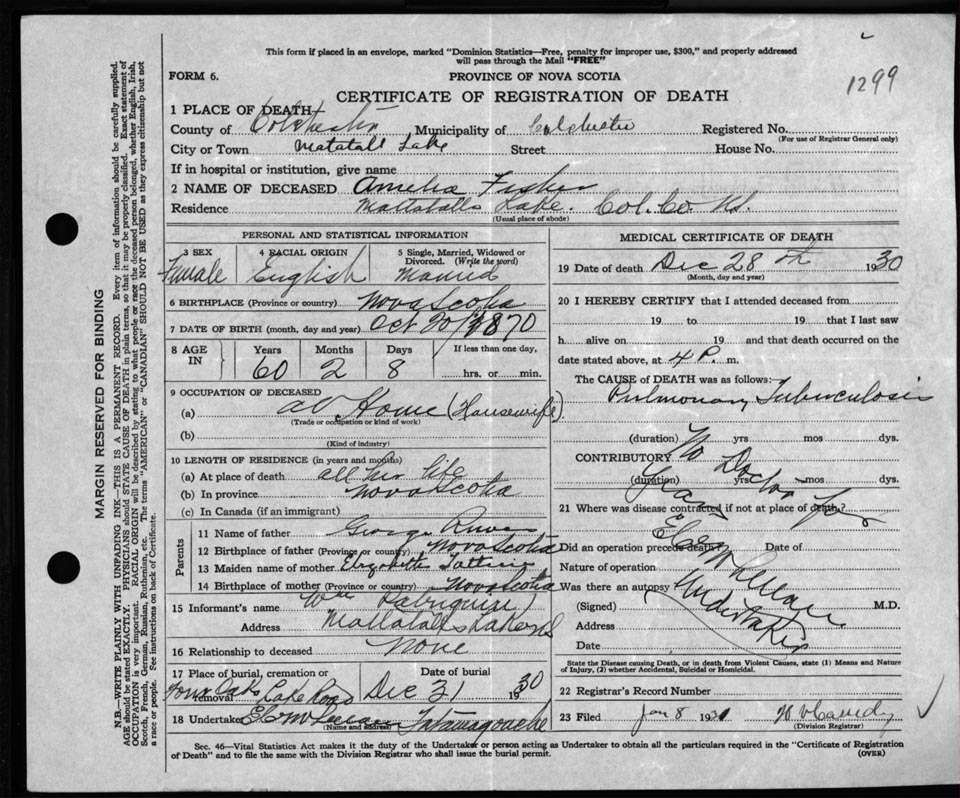 This form if placed in an envelope, marked "Dominion Statistics—Free, penalty for improper use, $300," and properly addressed
will pass through the Mail "FREE"
1299
FORM 6.
PROVINCE OF NOVA SCOTIA
CERTIFICATE OF REGISTRATION OF DEATH
1 PLACE OF DEATH
County of Colchester Municipality of Colchester Registered No.
(For use of Registrar General only)
City or Town Matatall Lake Street House No.
If in hospital or institution, give name
2 NAME OF DECEASED Amelia Fisher
Residence Mattatalls Lake. Col. Co. N.S.
(Usual place of abode)
PERSONAL AND STATISTICAL INFORMATION
3 SEX 4 RACIAL ORIGIN 5 Single, Married, Widowed or
Divorced. (Write the word)
Female English Married
6 BIRTHPLACE (Province or country) Nova Scotia
7 DATE OF BIRTH (month, day and year) Oct 20/1870
8 AGE IN Years Months Days If less than one day,
60 2 8 hrs. or min.
9 OCCUPATION OF DECEASED
(a) at Home (Housewife)
(Trade or occupation or kind of work)
(b)
(Kind of industry)
10 LENGTH OF RESIDENCE (in years and months)
(a) At place of death all her life
(b) In province Nova Scotia
(c) In Canada (if an immigrant)
Parents
11 Name of father George
12 Birthplace of father (Province or country) Nova Scotia
13 Maiden name of mother Elizabeth
14 Birthplace of mother (Province or country) Nova Scotia
15 Informant's name Wm
Address Mattatalls Lake NS
16 Relationship to deceased None
17 Place of burial, cremation or removal Date of burial
Lake Road Dec 31 1930
18 Undertaker Tatamagouche
(Name and address)
MEDICAL CERTIFICATE OF DEATH
19 Date of death Dec 28 th 1930
(Month, day and year)
20 I HEREBY CERTIFY that I attended deceased from
19 to 19 that I last saw
h alive on 19 and that death occurred on the
date stated above, at 4 P. m.
The CAUSE of DEATH was as follows:—
Pulmonary Tuberculosis
(duration) yrs mos dys.
CONTRIBUTORY No Doctor
(duration) yrs mos dys.
21 Where was disease contracted if not at place of death?
Did an operation precede death? Date of
Nature of operation
Was there an autopsy Undertaker
(Signed) M.D.
Address
Date
State the Disease causing Death, or in death from Violent Causes, state (1) Means and Nature
of Injury, (2) whether Accidental, Suicidal or Homicidal.
22 Registrar's Record Number
23 Filed Jan 8 1931
(Division Registrar)
Sec. 46—Vital Statistics Act makes it the duty of the Undertaker or person acting as Undertaker to obtain all the particulars required in the "Certificate of Registration
of Death" and to file the same with the Division Registrar who shall issue the burial permit.
(OVER)
MARGIN RESERVED FOR BINDING
N.B.—WRITE PLAINLY WITH UNFADING INK—THIS IS A PERMANENT RECORD. Every item of information should be carefully supplied.
AGE should be stated EXACTLY. PHYSICIANS should STATE CAUSE OF DEATH in plain terms, so that it may be properly classified. Exact statement of
OCCUPATION is very important. RACIAL ORIGIN will be described by stating to what people or race the deceased person belonged, whether English, Irish,
Scotch, French, German, Russian, Ruthenian, etc. The terms "AMERICAN" or "CANADIAN" SHOULD NOT BE USED as they express citizenship but not
a race or people. See instructions on back of Certificate.